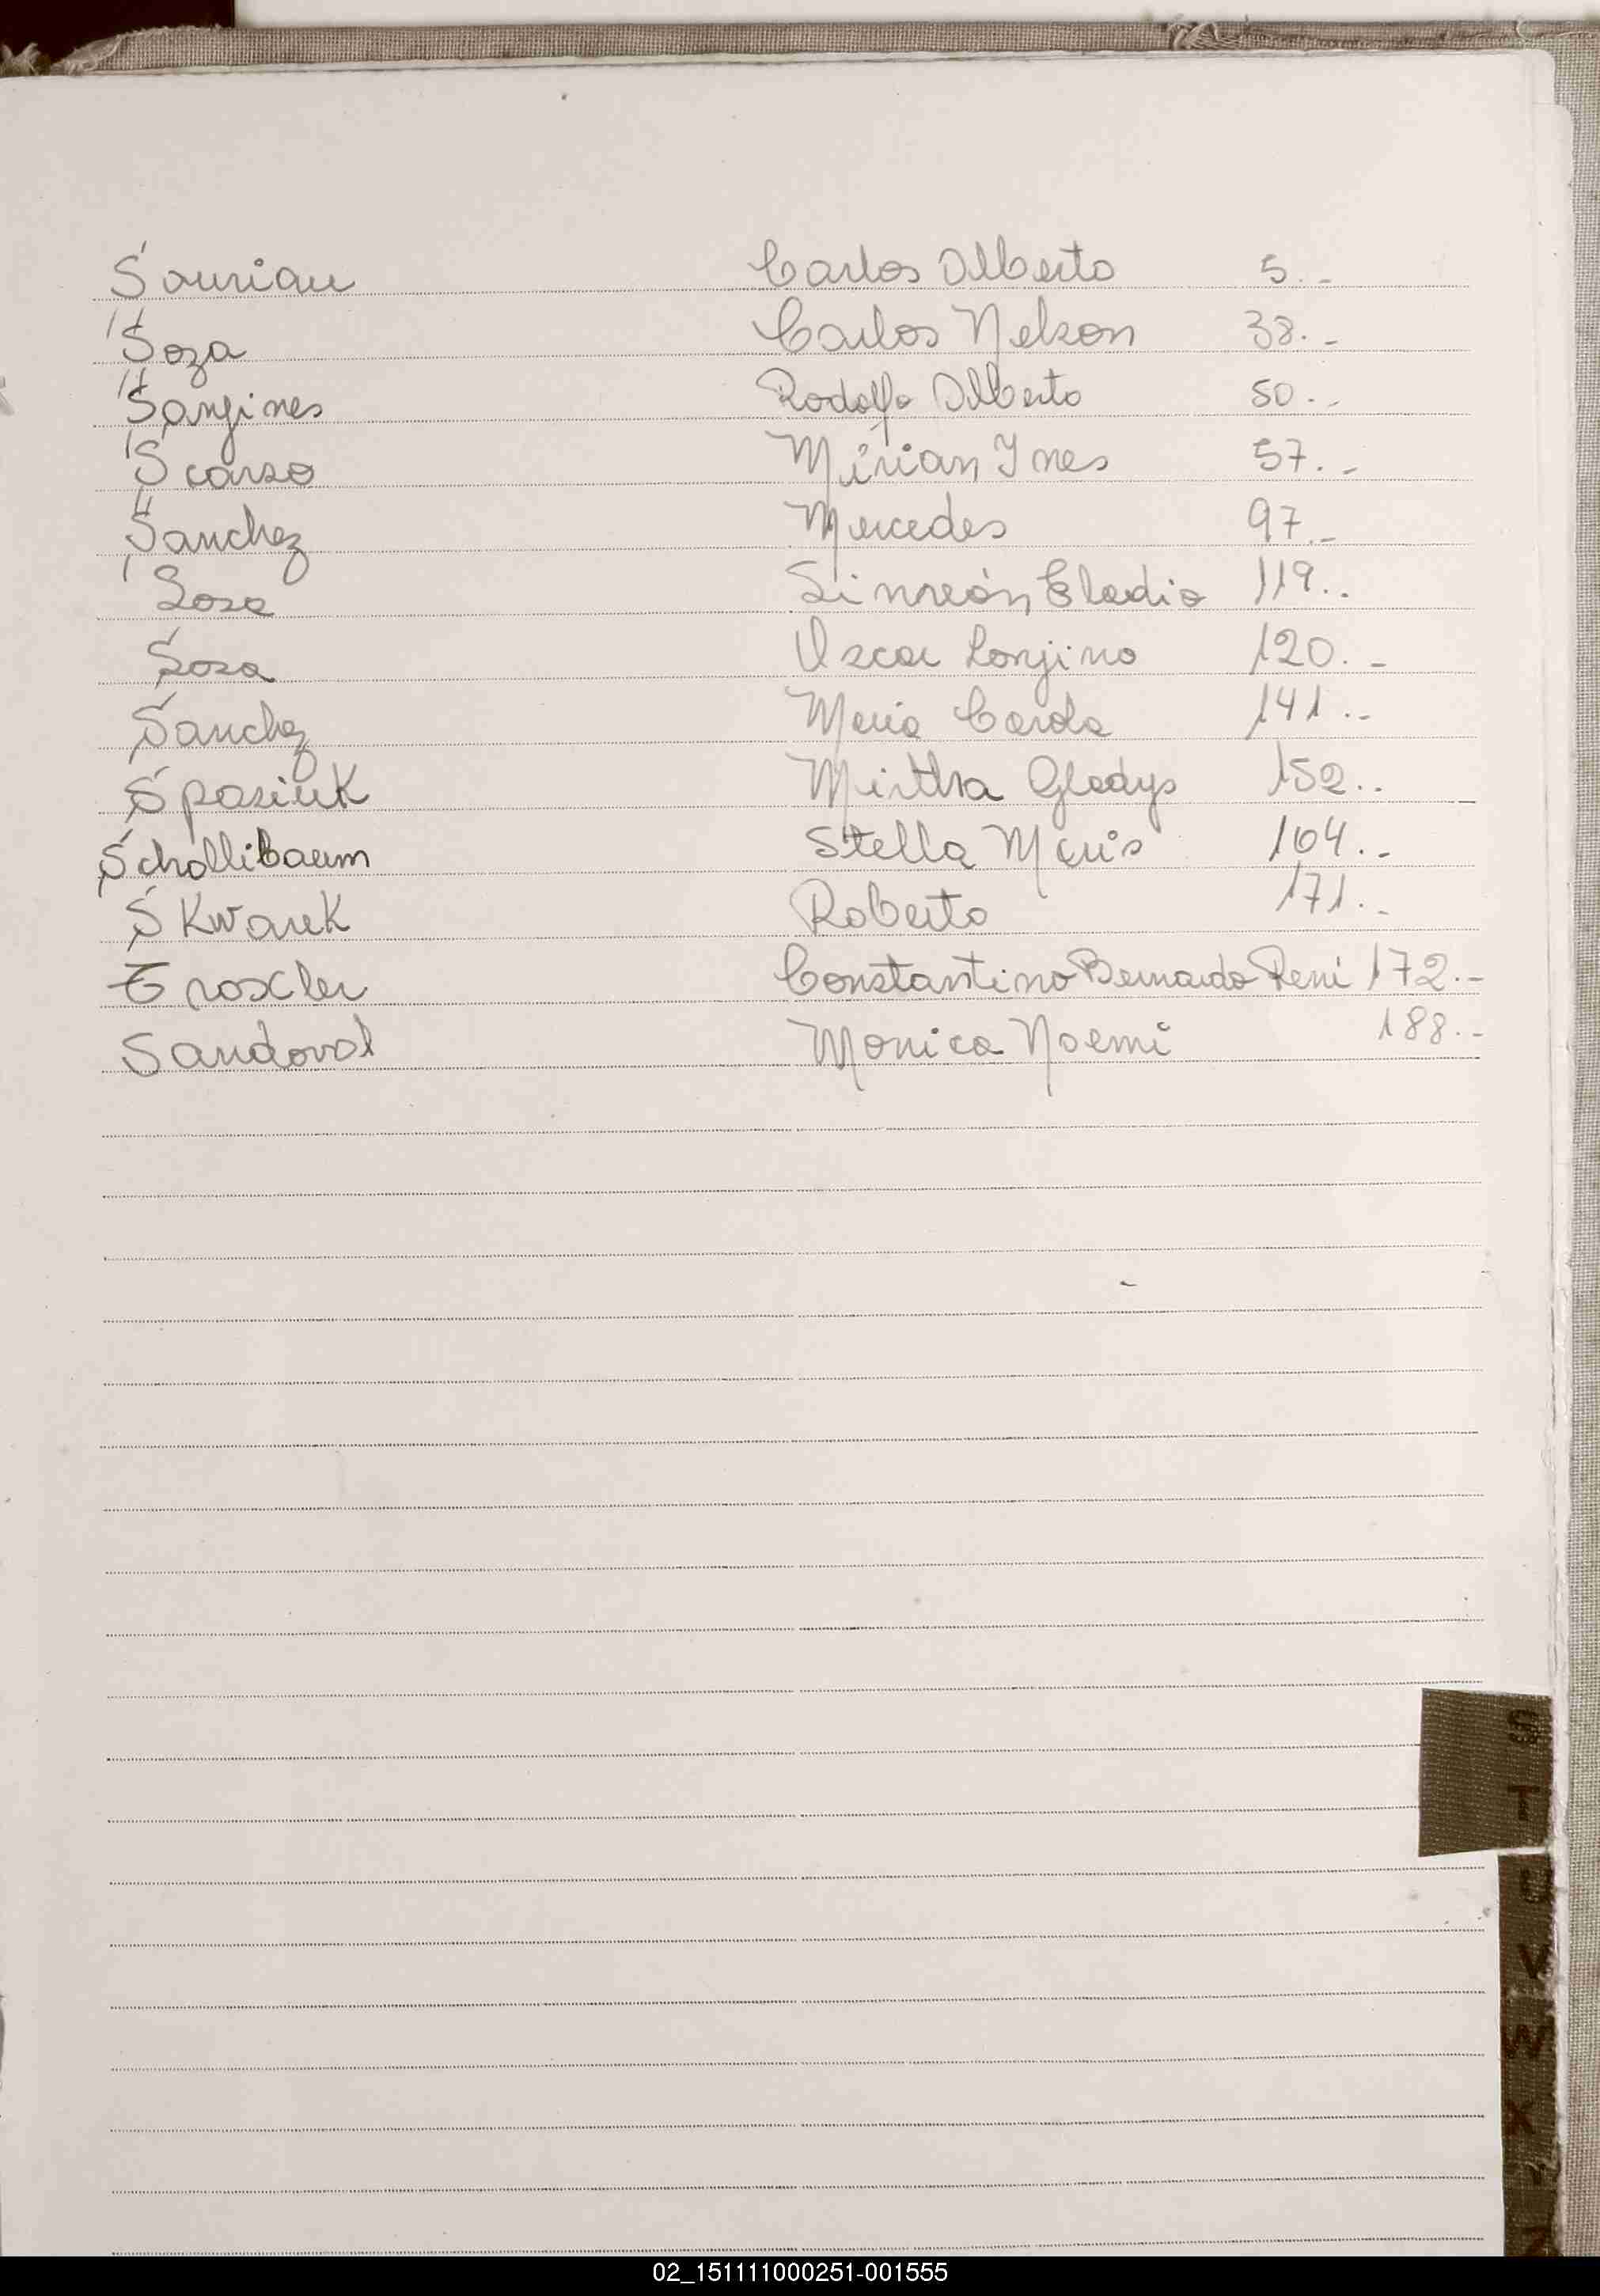 Saurian Carlos Alberto 5.-
Soza Carlos Nelson 38.-
Sangines Rodolfo Alberto 50.-
Scarso Mirian Ines 57.-
Sanchez Mercedes 97.-
Sosa Simeón Eladio 119..
Sosa Oscar Lonjino 120.-
Sanchez Maria Carola 141.-
Spasiuk Mirtha Gladys 152..
Schollibaum Stella Maris 164.-
SKwarek Roberto 171..
Troxler Constantino Bernardo Reni 172.-
Sandoval Monica Noemi 188.-
S
T
U
V
W
X
02_151111000251-001555